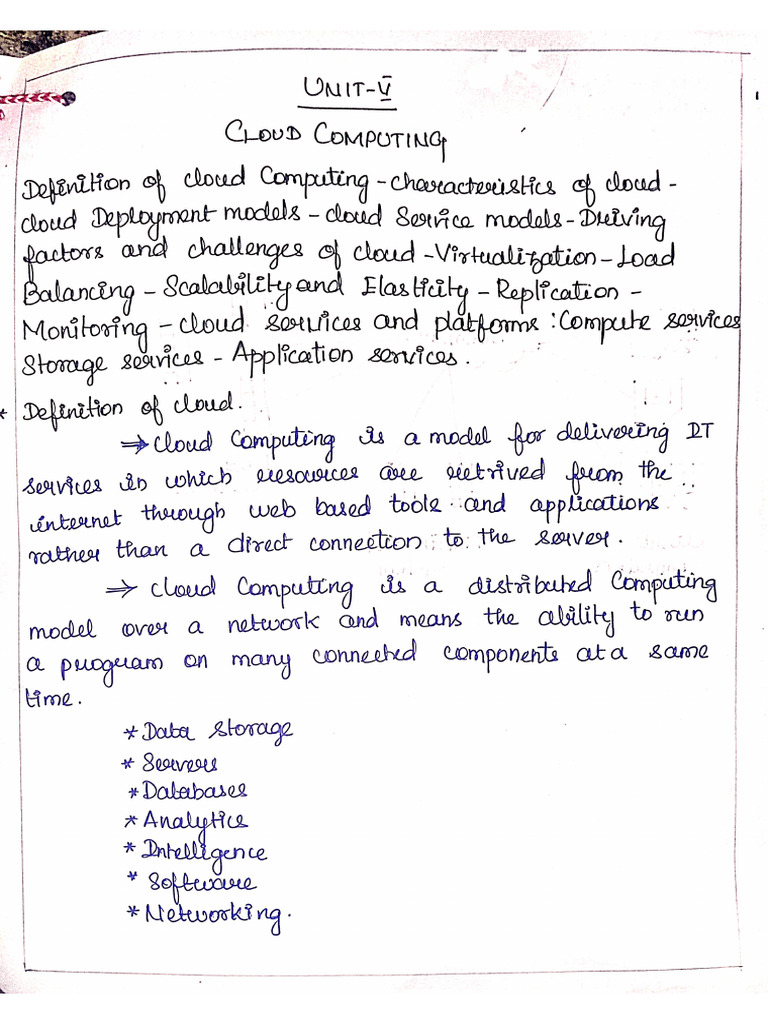 UNIT-V
CLOUD COMPUTING
Definition of cloud Computing - Characteristics of cloud -
cloud Deployment models - cloud Service models - Driving
factors and challenges of cloud - Virtualization - Load
Balancing - Scalability and Elasticity - Replication -
Monitoring - cloud services and platforms : Compute services
Storage services - Application services.
* Definition of cloud.
⇒ cloud Computing is a model for delivering IT
services in which resources are retrived from the
internet through web based tools and applications
rather than a direct connection to the server.
⇒ cloud Computing is a distributed Computing
model over a network and means the ability to run
a program on many connected components at a same
time.
* Data Storage
* Servers
* Databases
* Analytics
* Intelligence
* Software
* Networking.